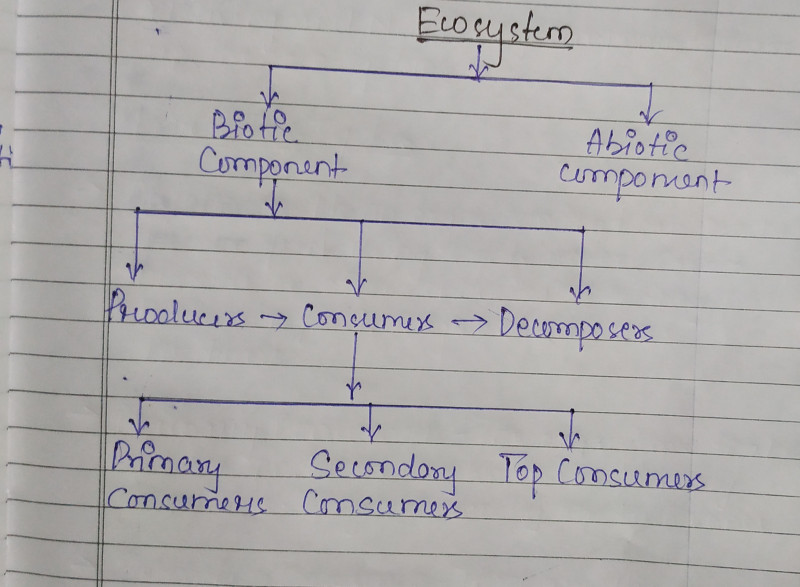 Ecosystem
Biotic
Component
Abiotic
component
Producers → Consumers → Decomposers
Primary
Consumers
Secondary
Consumers
Top Consumers